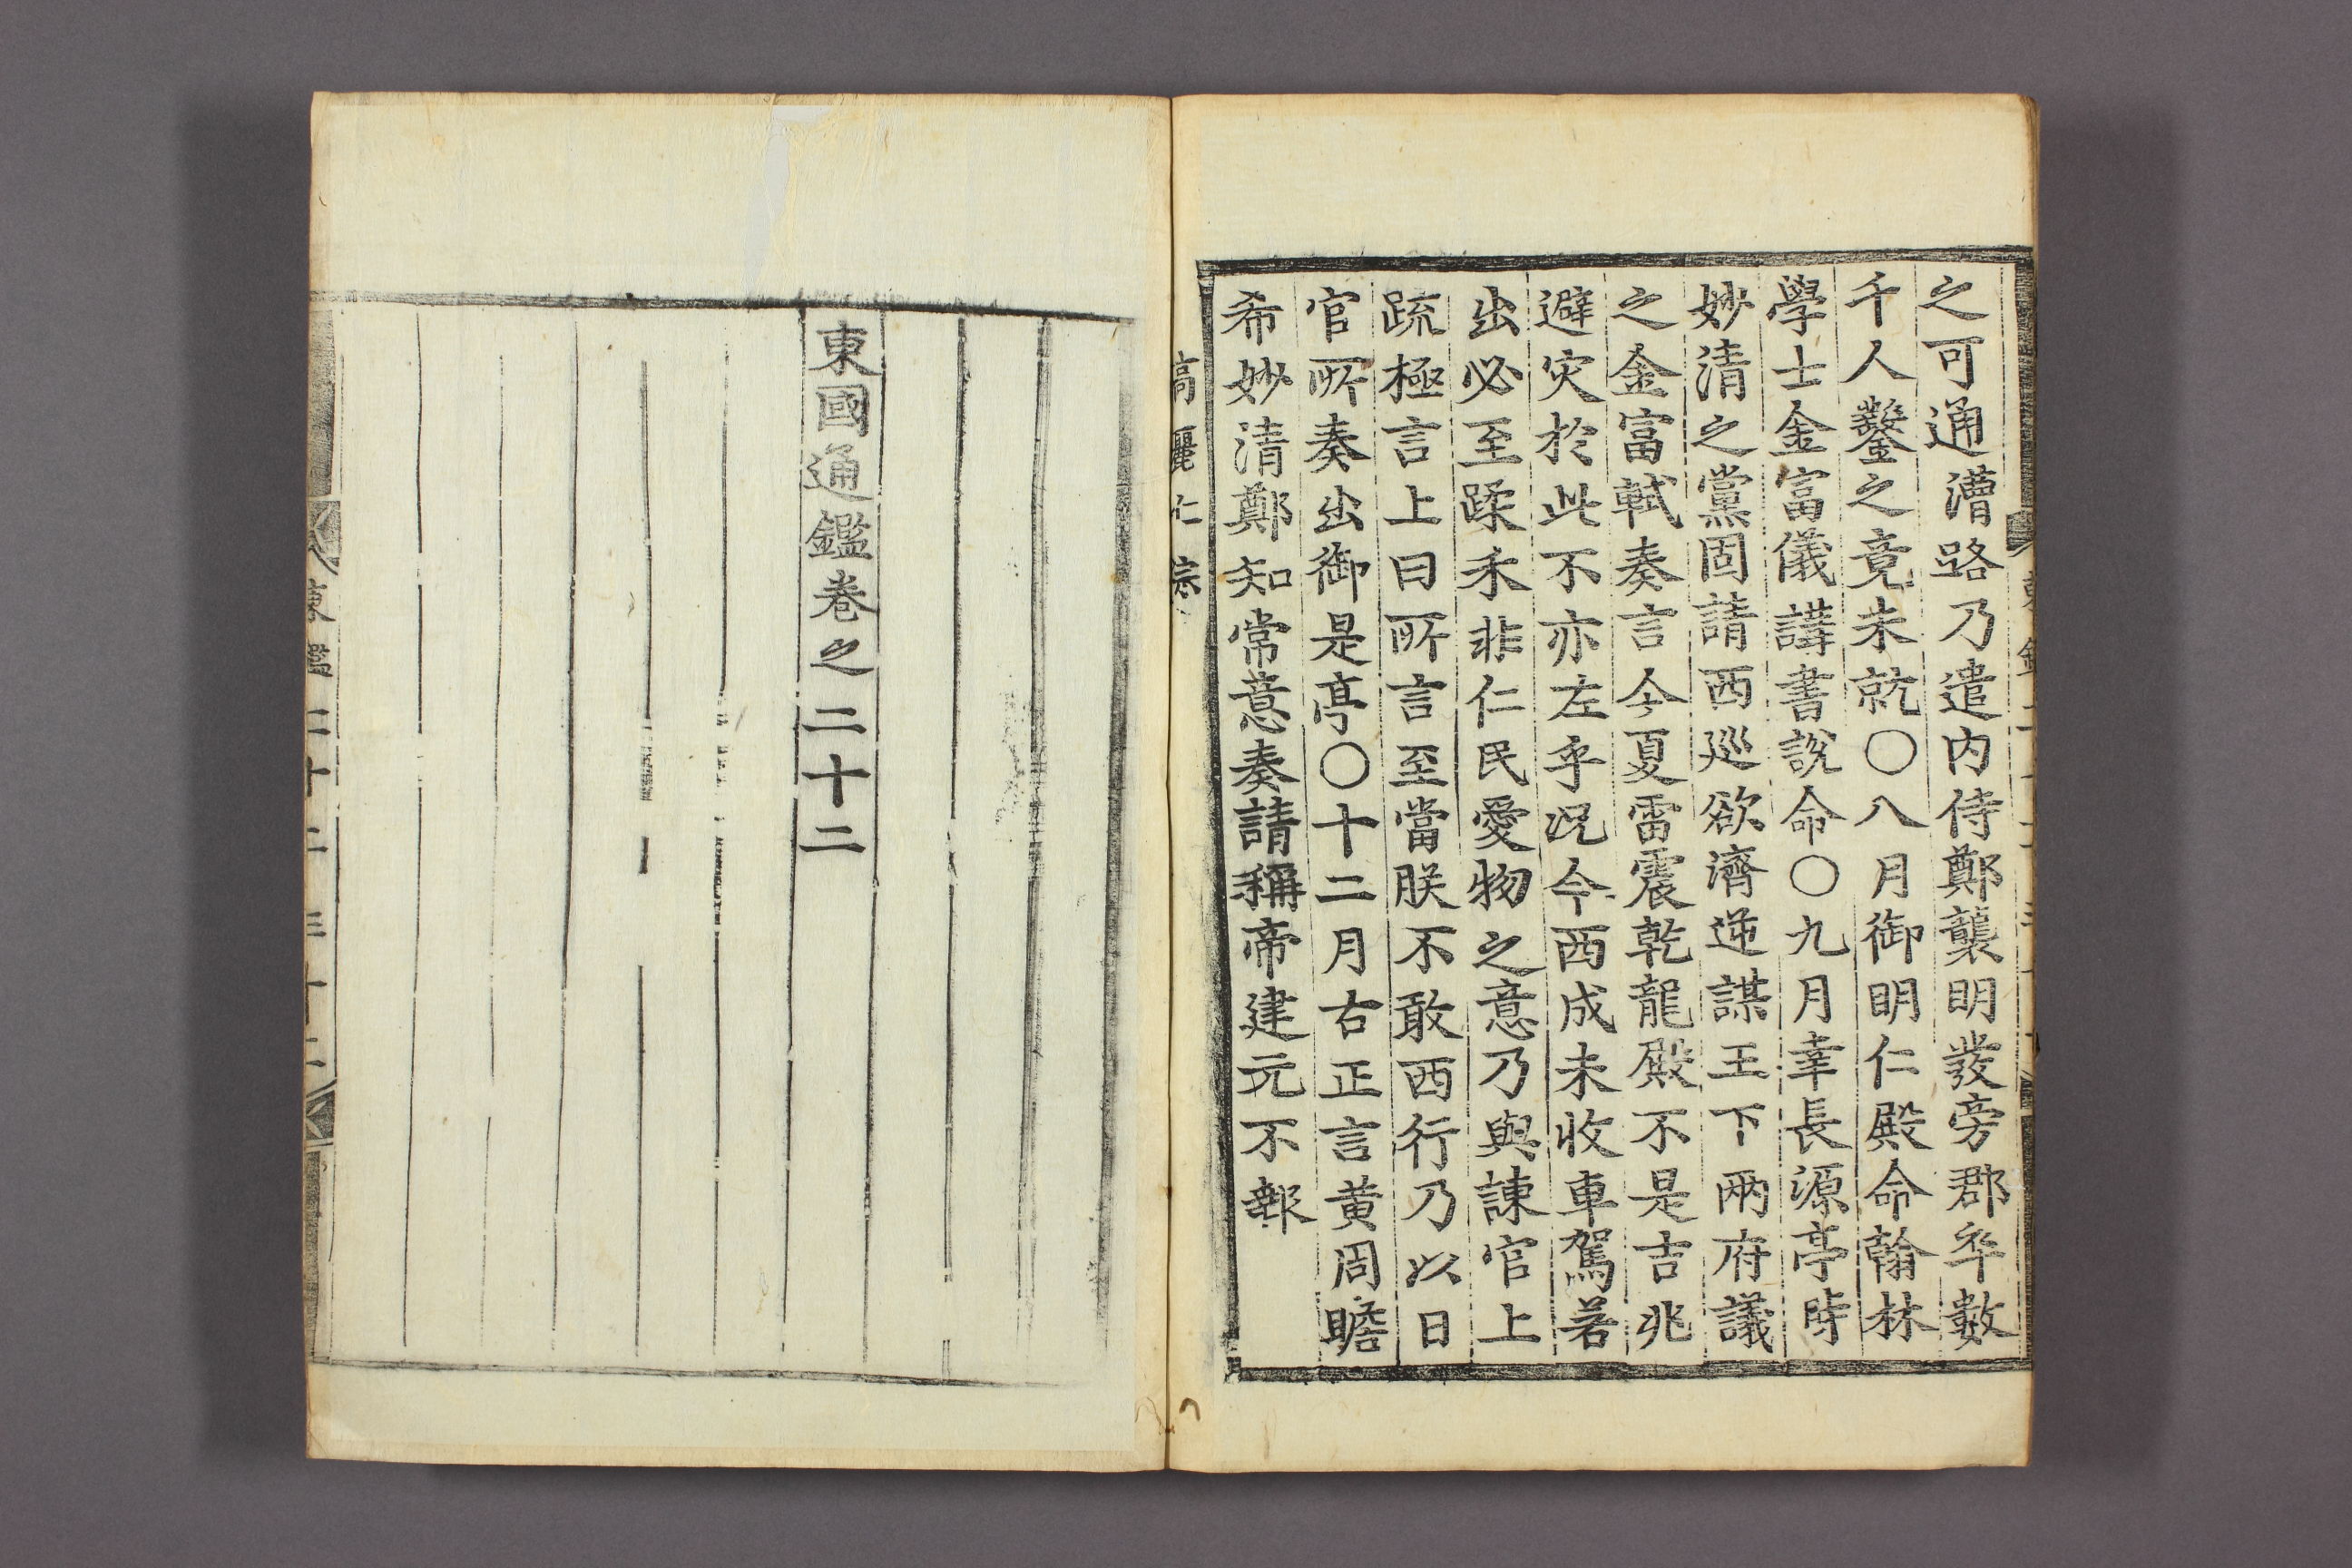 之可通漕路乃遣内侍鄭襲明發旁郡卒數
千人鑿之竟未就〇八月御明仁殿命翰林
學士金富儀講書說命〇九月幸長源亭時
妙清之黨固請西巡欲濟逆謀王下兩府議
之金富軾奏言今夏雷震乾龍殿不是吉兆
避灾於此不亦左乎况今西成未收車駕若
出必至蹂禾非仁民愛物之意乃與諫官上
疏極言上曰所言至當朕不敢西行乃以日
官所奏出御是亭〇十二月右正言黄周瞻
希妙清鄭知常意奏請稱帝建元不報
高麗仁宗
東國通鑑卷之二十二
東鑑二十二 三十二